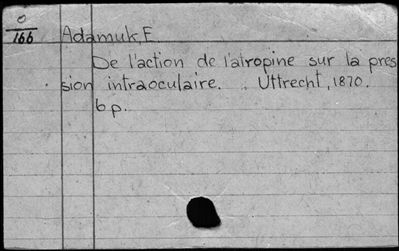 0
166
Adamuk, E.
De l'action de l'atropine sur la pres
sion intraoculaire. Uttrecht, 1870.
6 p.